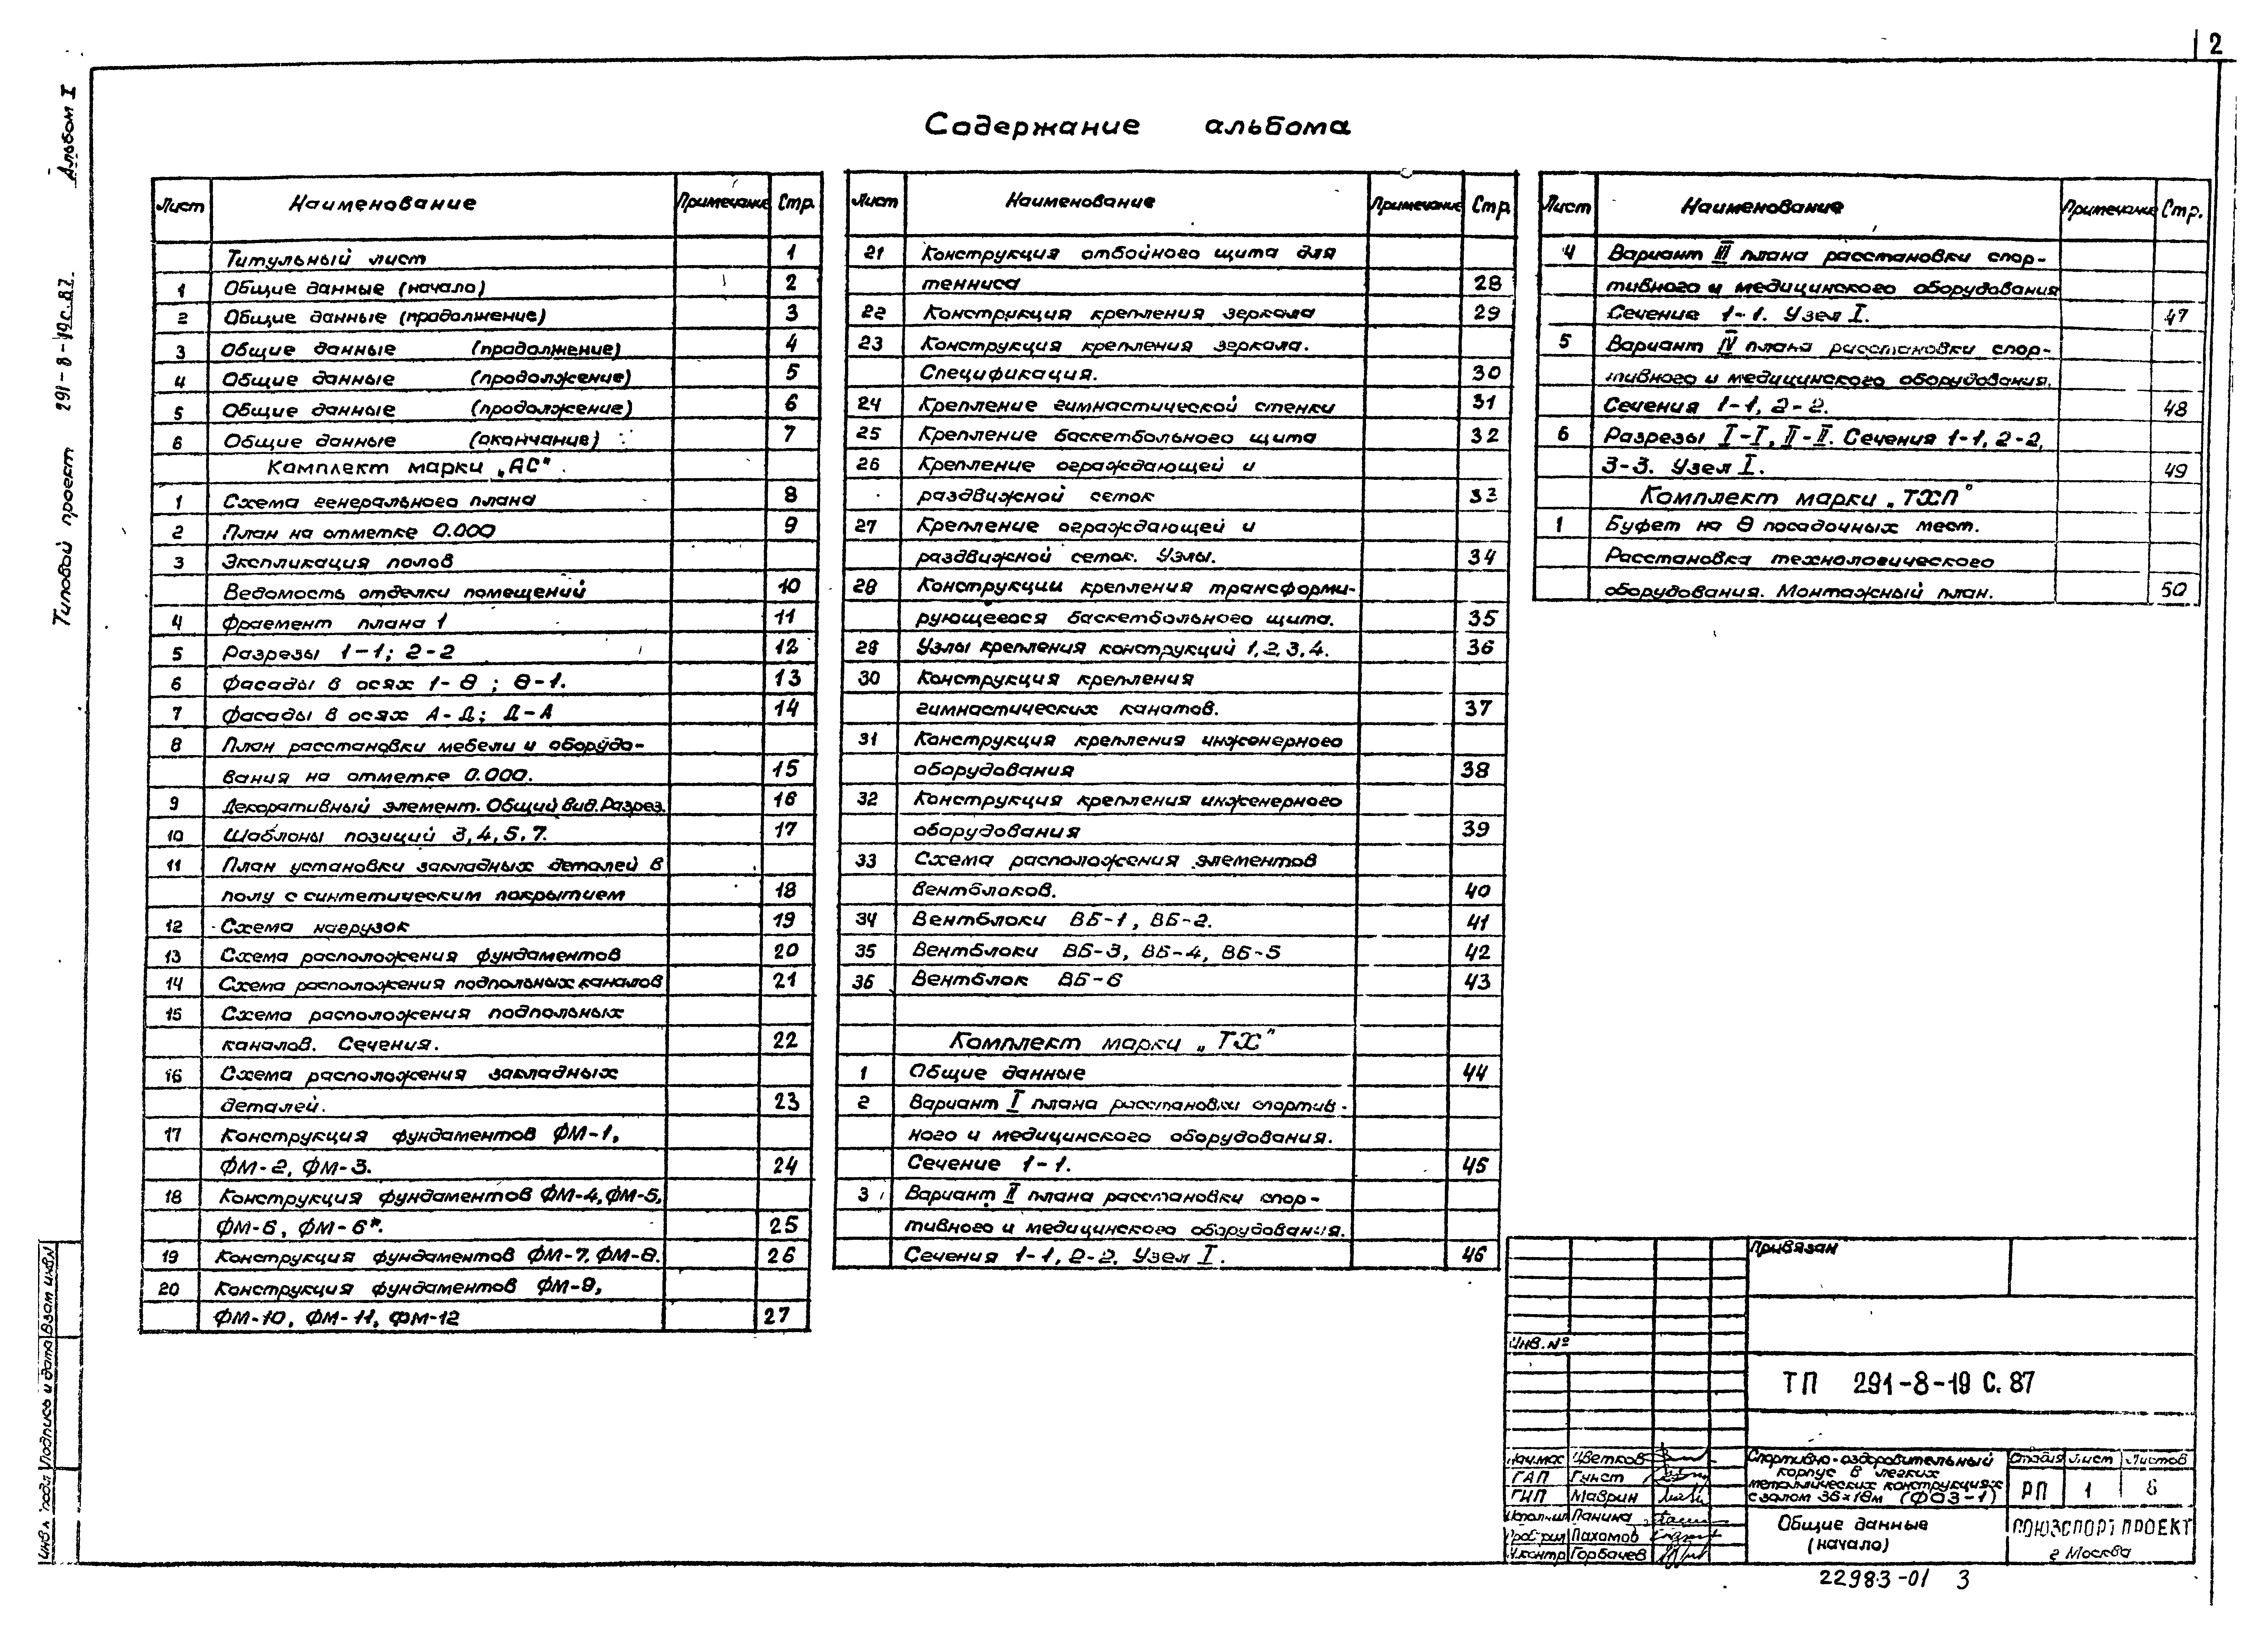 2
Альбом I
Типовой проект 291-8-19с.87
Содержание альбома
Лист Наименование Примечание Стр.
Титульный лист 1
1 Общие данные (начало) 2
2 Общие данные (продолжение) 3
3 Общие данные (продолжение) 4
4 Общие данные (продолжение) 5
5 Общие данные (продолжение) 6
6 Общие данные (окончание) 7
Комплект марки „АС"
1 Схема генерального плана 8
2 План на отметке 0.000 9
3 Экспликация полов
Ведомость отделки помещений 10
4 Фрагмент плана 1 11
5 Разрезы 1-1; 2-2 12
6 Фасады в осях 1-8; 8-1. 13
7 Фасады в осях А-Д; Д-А 14
8 План расстановки мебели и оборудо-
вания на отметке 0.000. 15
9 Декоративный элемент. Общий вид. Разрез. 16
10 Шаблоны позиций 3,4,5,7. 17
11 План установки закладных деталей в
полу с синтетическим покрытием 18
12 Схема нагрузок 19
13 Схема расположения фундаментов 20
14 Схема расположения подпольных каналов 21
15 Схема расположения подпольных
каналов. Сечения. 22
16 Схема расположения закладных
деталей. 23
17 Конструкция фундаментов ФМ-1,
ФМ-2, ФМ-3. 24
18 Конструкция фундаментов ФМ-4, ФМ-5,
ФМ-6, ФМ-6н. 25
19 Конструкция фундаментов ФМ-7, ФМ-8. 26
20 Конструкция фундаментов ФМ-9,
ФМ-10, ФМ-11, ФМ-12 27
Лист Наименование Примечание Стр.
21 Конструкция отбойного щита для
тенниса 28
22 Конструкция крепления зеркала 29
23 Конструкция крепления зеркала.
Спецификация. 30
24 Крепление гимнастической стенки 31
25 Крепление баскетбольного щита 32
26 Крепление ограждающей и
раздвижной сеток 33
27 Крепление ограждающей и
раздвижной сеток. Узлы. 34
28 Конструкции крепления трансформи-
рующегося баскетбольного щита. 35
29 Узлы крепления конструкций 1,2,3,4. 36
30 Конструкция крепления
гимнастических канатов. 37
31 Конструкция крепления инженерного
оборудования 38
32 Конструкция крепления инженерного
оборудования 39
33 Схема расположения элементов
вентблоков. 40
34 Вентблоки ВБ-1, ВБ-2. 41
35 Вентблоки ВБ-3, ВБ-4, ВБ-5 42
36 Вентблок ВБ-6 43
Комплект марки „ТХ"
1 Общие данные 44
2 Вариант I плана расстановки спортив-
ного и медицинского оборудования.
Сечение 1-1. 45
3 Вариант II плана расстановки спор-
тивного и медицинского оборудования.
Сечения 1-1, 2-2. Узел I. 46
Лист Наименование Примечание Стр.
4 Вариант III плана расстановки спор-
тивного и медицинского оборудования
Сечение 1-1. Узел I. 47
5 Вариант IV плана расстановки спор-
тивного и медицинского оборудования.
Сечения 1-1, 2-2. 48
6 Разрезы I-I, II-II. Сечения 1-1, 2-2,
3-3. Узел I. 49
Комплект марки „ТХП"
1 Буфет на 8 посадочных мест.
Расстановка технологического
оборудования. Монтажный план. 50
Привязан
Инв. №
ТП 291-8-19 С. 87
Нач.мас Цветков
ГАП Гунст
ГИП Маврин
Исполнил Панина
Проверил Пахомов
Н.контр Горбачев
Спортивно-оздоровительный
корпус в легких
металлических конструкциях
с залом 36х18м (ФОЗ-1)
Стадия Лист Листов
РП 1 6
Общие данные
(начало)
СОЮЗСПОРТПРОЕКТ
г Москва
22983-01 3
Инв.№ подл. Подпись и дата Взам инв.№